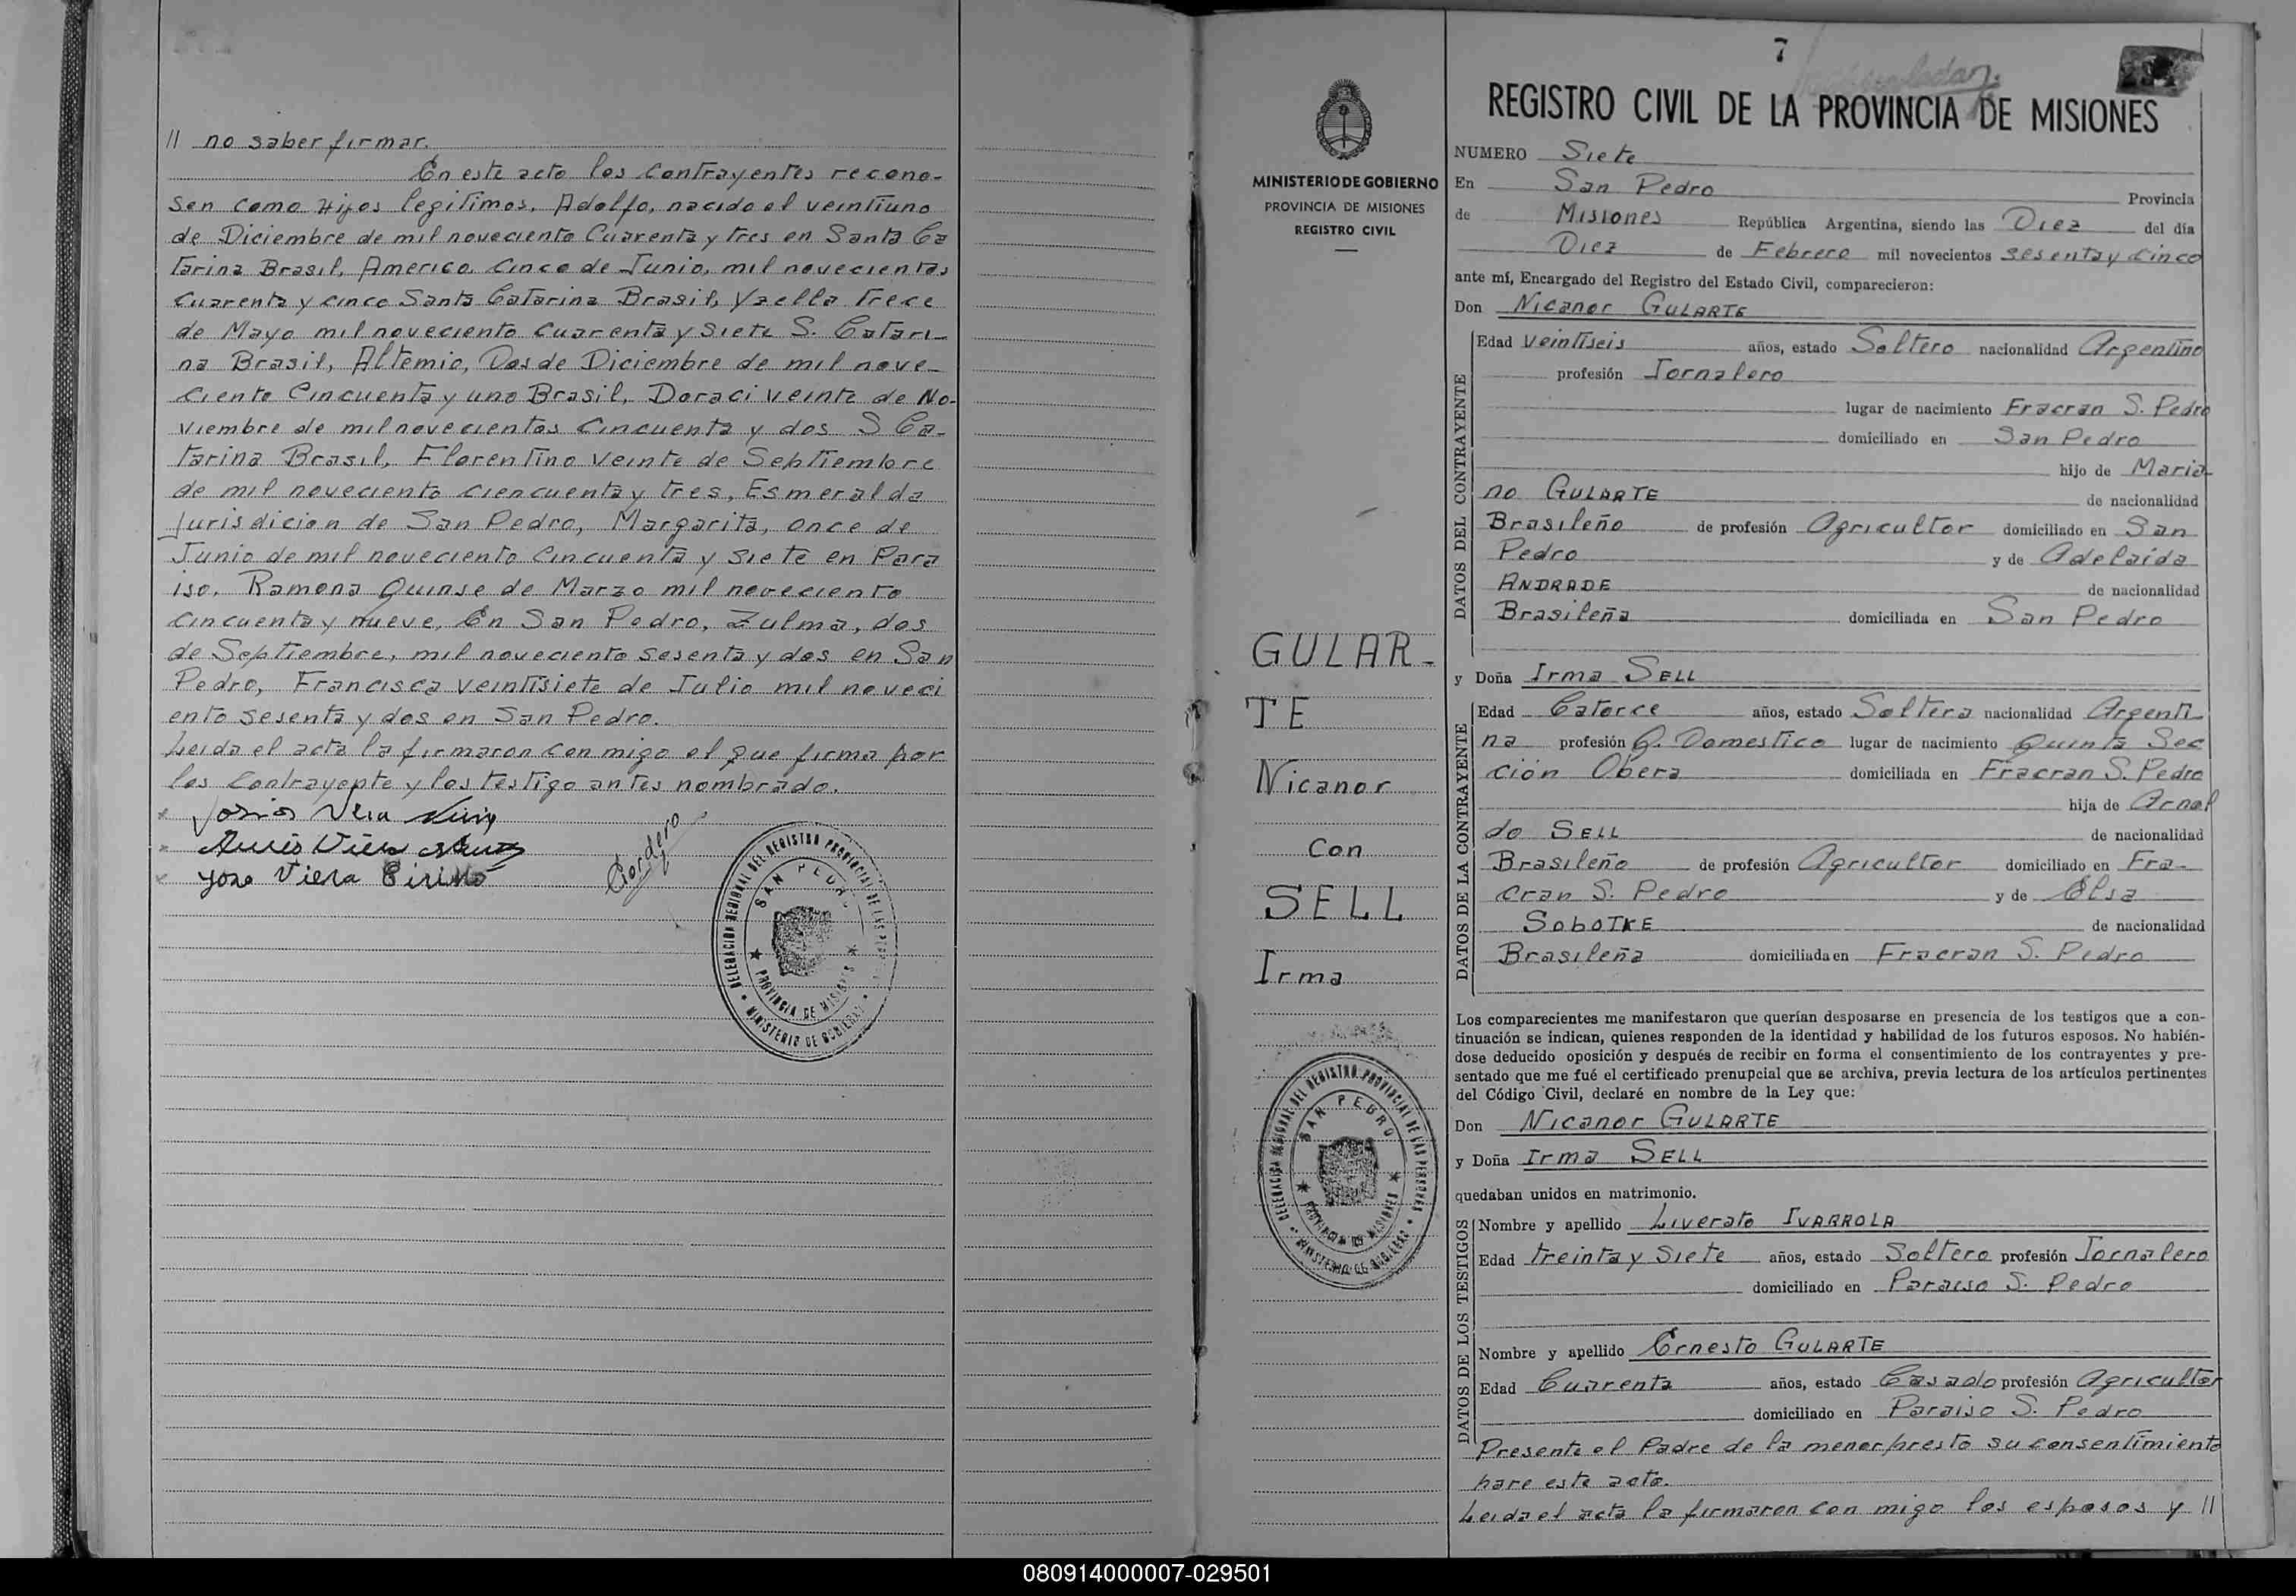 // no saber firmar.
En este acto los contrayentes recono-
sen como Hijos legitimos, Adolfo, nacido el veintiuno
de Diciembre de mil noveciento Cuarenta y tres en Santa Ca
tarina Brasil, Americo, Cinco de Junio, mil novecientos
cuarenta y cinco Santa Catarina Brasil, Yaella trece
de Mayo mil noveciento cuarenta y siete S. Catari-
na Brasil, Altemio, Dos de Diciembre de mil nove-
ciento Cincuenta y uno Brasil, Doraci veinte de No-
viembre de mil novecientos cincuenta y dos S Ca-
tarina Brasil, Florentino veinte de Septiembre
de mil noveciento ciencuenta y tres, Esmeralda
jurisdicion de San Pedro, Margarita, once de
Junio de mil noveciento Cincuenta y siete en Para
iso, Ramona Quinse de Marzo mil noveciento
cincuenta y nueve, En San Pedro, Zulma, dos
de Septiembre, mil noveciento sesenta y dos en San
Pedro, Francisca veintisiete de Julio mil noveci
ento sesenta y dos en San Pedro.
Leida el acta la firmaron con migo el que firma por
los Contrayente y los testigo antes nombrado.
Vera
Viera
Jose Viera Cirillo
Cordero
DELEGACION REGIONAL DEL REGISTRO PROVINCIAL DE LAS
SAN PEDRO
PROVINCIA DE MISIONES
MINISTERIO DE GOBIERNO
MINISTERIO DE GOBIERNO
PROVINCIA DE MISIONES
REGISTRO CIVIL
GULAR-
TE
Nicanor
Con
SELL
Irma
DELEGACION REGIONAL DEL REGISTRO PROVINCIAL DE LAS PERSONAS
SAN PEDRO
PROVINCIA DE MISIONES
MINISTERIO DE GOBIERNO
7
REGISTRO CIVIL DE LA PROVINCIA DE MISIONES
NUMERO Siete
En San Pedro Provincia
de Misiones República Argentina, siendo las Diez del día
Diez de Febrero mil novecientos sesenta y cinco
ante mí, Encargado del Registro del Estado Civil, comparecieron:
Don Nicanor GULARTE
DATOS DEL CONTRAYENTE
Edad veintiseis años, estado Soltero nacionalidad Argentino
profesión Jornalero
lugar de nacimiento Fracran S. Pedro
domiciliado en San Pedro
hijo de Maria-
no GULARTE de nacionalidad
Brasileño de profesión Agricultor domiciliado en San
Pedro y de Adelaida
ANDRADE de nacionalidad
Brasileña domiciliada en San Pedro
y Doña Irma SELL
DATOS DE LA CONTRAYENTE
Edad Catorce años, estado Soltera nacionalidad Argenti-
na profesión Q. Domestico lugar de nacimiento Quinta Sec
ción Obera domiciliada en Fracran S. Pedro
hija de Arnol
do SELL de nacionalidad
Brasileño de profesión Agricultor domiciliado en Fra-
cran S. Pedro y de Elsa
SOBOTKE de nacionalidad
Brasileña domiciliada en Fracran S. Pedro
Los comparecientes me manifestaron que querían desposarse en presencia de los testigos que a con-
tinuación se indican, quienes responden de la identidad y habilidad de los futuros esposos. No habién-
dose deducido oposición y después de recibir en forma el consentimiento de los contrayentes y pre-
sentado que me fué el certificado prenupcial que se archiva, previa lectura de los artículos pertinentes
del Código Civil, declaré en nombre de la Ley que:
Don Nicanor GULARTE
y Doña Irma SELL
quedaban unidos en matrimonio.
DATOS DE LOS TESTIGOS
Nombre y apellido Liverato IVARROLA
Edad treinta y siete años, estado Soltero profesión Jornalero
domiciliado en Paraiso S. Pedro
Nombre y apellido Ernesto GULARTE
Edad Cuarenta años, estado Casado profesión Agricultor
domiciliado en Paraiso S. Pedro
Presente el Padre de la menor presto su consentimiento
pare este acto.
Leida el acta la firmaron con migo los esposos y //
080914000007-029501